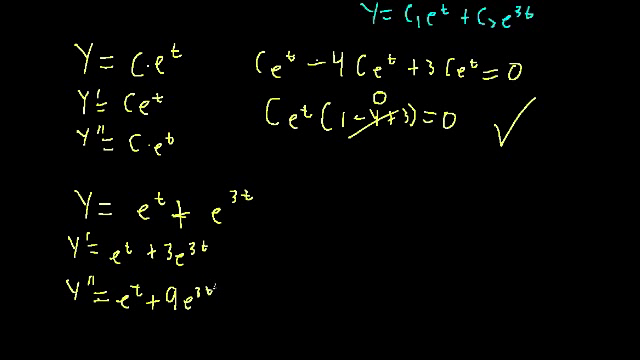 y = c₁eᵗ + c₂e³ᵗ
y = c·eᵗ
y' = ceᵗ
y'' = c·eᵗ
ceᵗ - 4ceᵗ + 3ceᵗ = 0
0
ceᵗ(1 - 4 + 3) = 0 ✓
y = eᵗ + e³ᵗ
y' = eᵗ + 3e³ᵗ
y'' = eᵗ + 9e³ᵗ